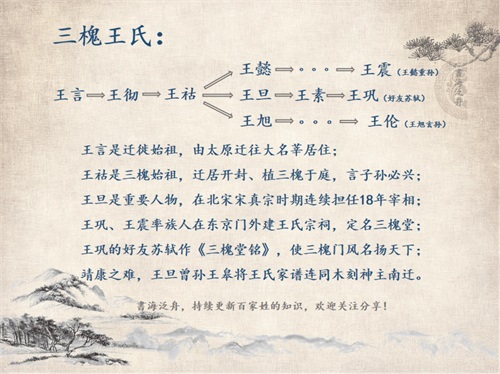 三槐王氏：
王懿 ⇒ · · · ⇒ 王震（王懿重孙）
王言 ⇒ 王彻 ⇒ 王祜 → 王旦 ⇒ 王素 ⇒ 王巩（好友苏轼）
王旭 ⇒ · · · ⇒ 王伦（王旭玄孙）
王言是迁徙始祖，由太原迁往大名莘居住；
王祜是三槐始祖，迁居开封、植三槐于庭，言子孙必兴；
王旦是重要人物，在北宋宋真宗时期连续担任18年宰相；
王巩、王震率族人在东京门外建王氏宗祠，定名三槐堂；
王巩的好友苏轼作《三槐堂铭》，使三槐门风名扬天下；
靖康之难，王旦曾孙王皋将王氏家谱连同木刻神主南迁。
書海泛舟，持续更新百家姓的知识，欢迎关注分享！
書海泛舟